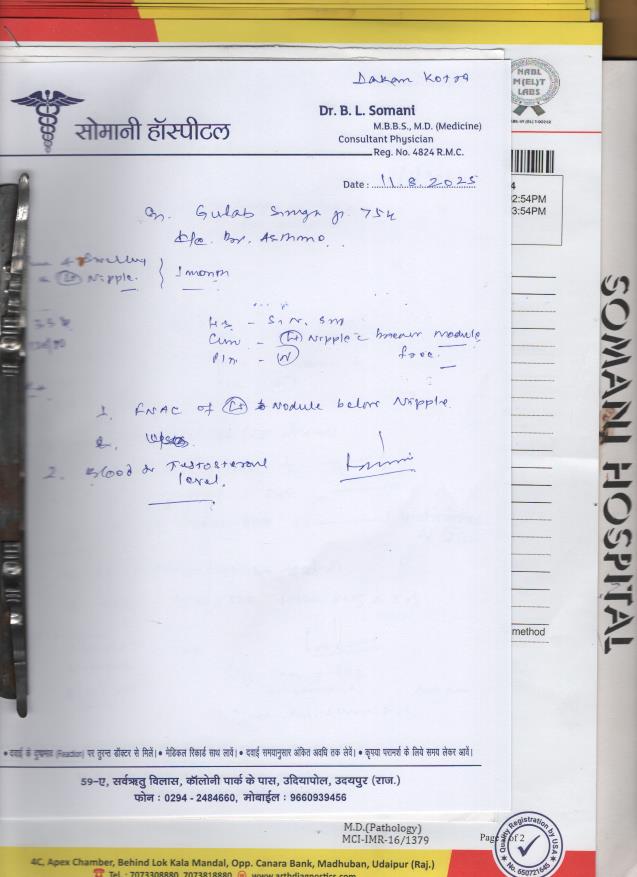 Dakan Kotra
सोमानी हॉस्पीटल
Dr. B. L. Somani
M.B.B.S., M.D. (Medicine)
Consultant Physician
Reg. No. 4824 R.M.C.
Date : 11.8.2025
Gulab Singh 75y
Br. Asthma
Swelling
Lt Nipple } 1 month
Hs - S1 N, S2 N
Lt Nipple c breast nodule
P/A - N free
1. FNAC of Lt Nodule below Nipple
2. Blood for Testosterone
level.
NABL
M(EL)T
LABS
2:54PM
3:54PM
method
SOMANI HOSPITAL
• दवाई के दुष्प्रभाव (Reaction) पर तुरन्त डॉक्टर से मिलें। • मेडिकल रिकार्ड साथ लावें। • दवाई समयानुसार अंकित अवधि तक लेवें। • कृपया परामर्श के लिये समय लेकर आवें।
59-ए, सर्वऋतु विलास, कॉलोनी पार्क के पास, उदियापोल, उदयपुर (राज.)
फोन : 0294 - 2484660, मोबाईल : 9660939456
M.D.(Pathology)
MCI-IMR-16/1379
Page 2 of 2
Quality Registration by U.S.A.
No. 650721645
4C, Apex Chamber, Behind Lok Kala Mandal, Opp. Canara Bank, Madhuban, Udaipur (Raj.)
Tel. : 7073308880, 7073818880 www.arthdiagnostics.com